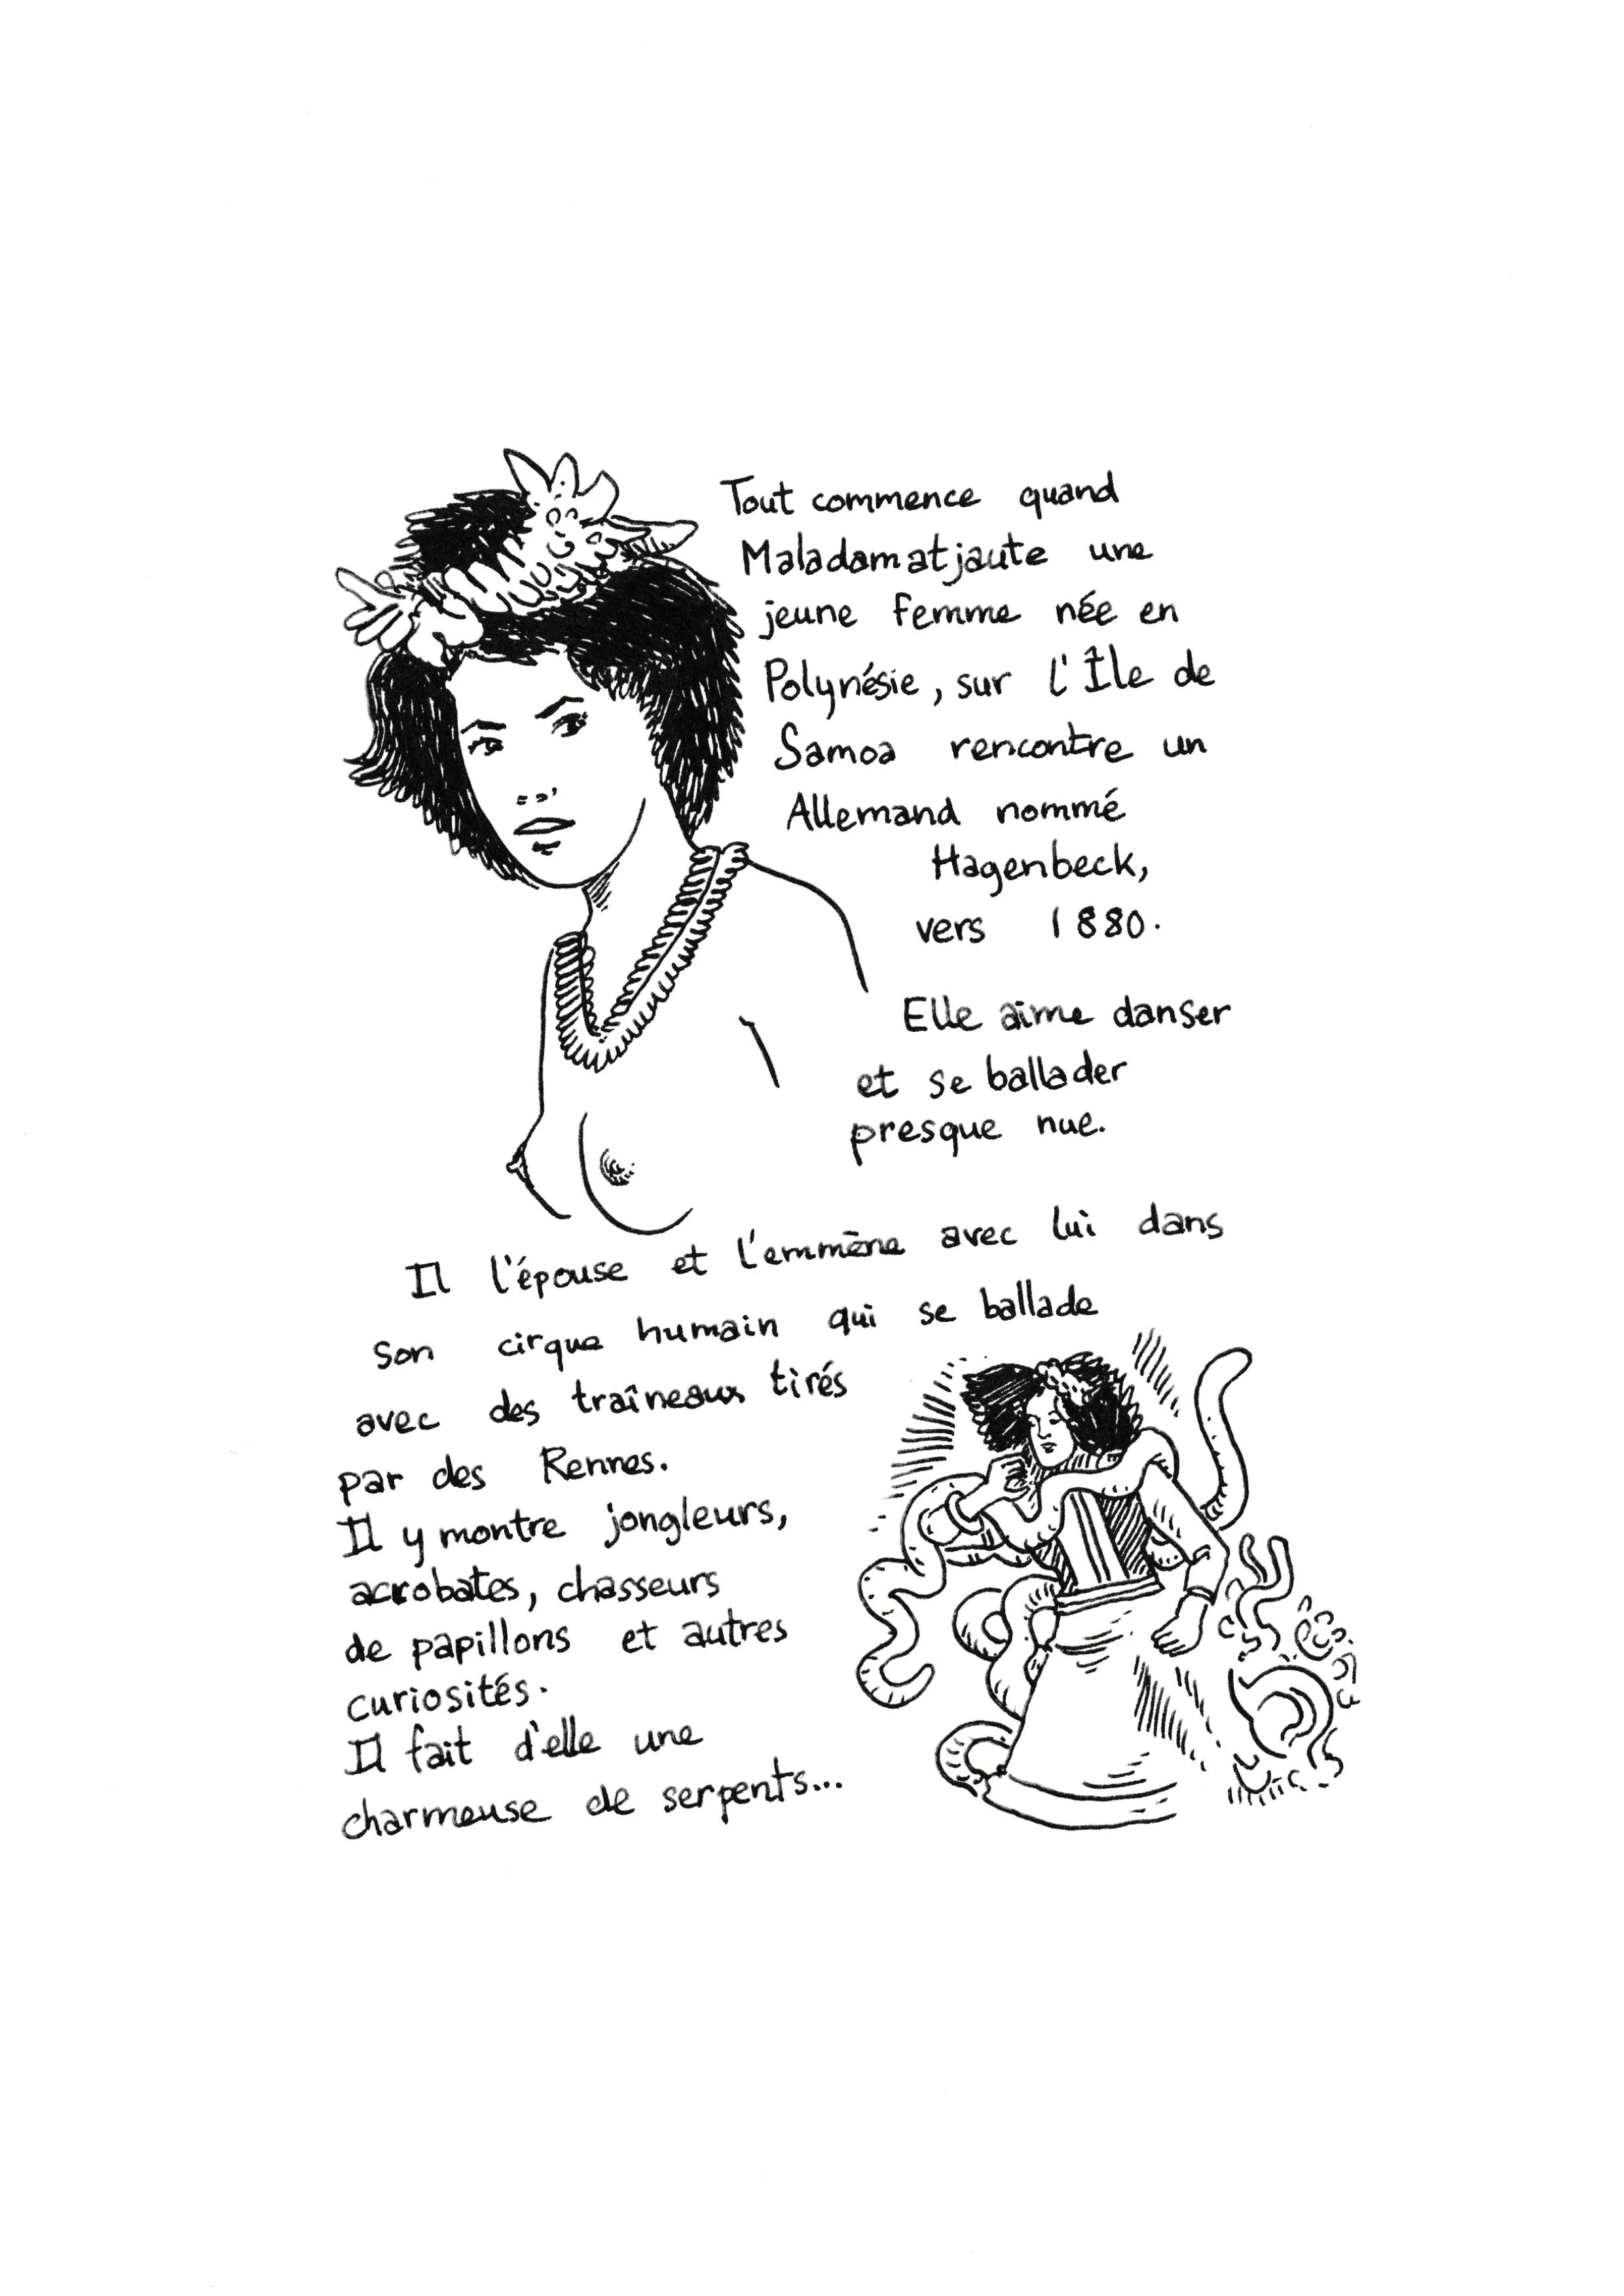 Tout commence quand
Maladamatjaute une
jeune femme née en
Polynésie, sur l'Île de
Samoa rencontre un
Allemand nommé
Hagenbeck,
vers 1880.
Elle aime danser
et se ballader
presque nue.
Il l'épouse et l'emmène avec lui dans
son cirque humain qui se ballade
avec des traîneaux tirés
par des Rennes.
Il y montre jongleurs,
acrobates, chasseurs
de papillons et autres
curiosités.
Il fait d'elle une
charmeuse de serpents...